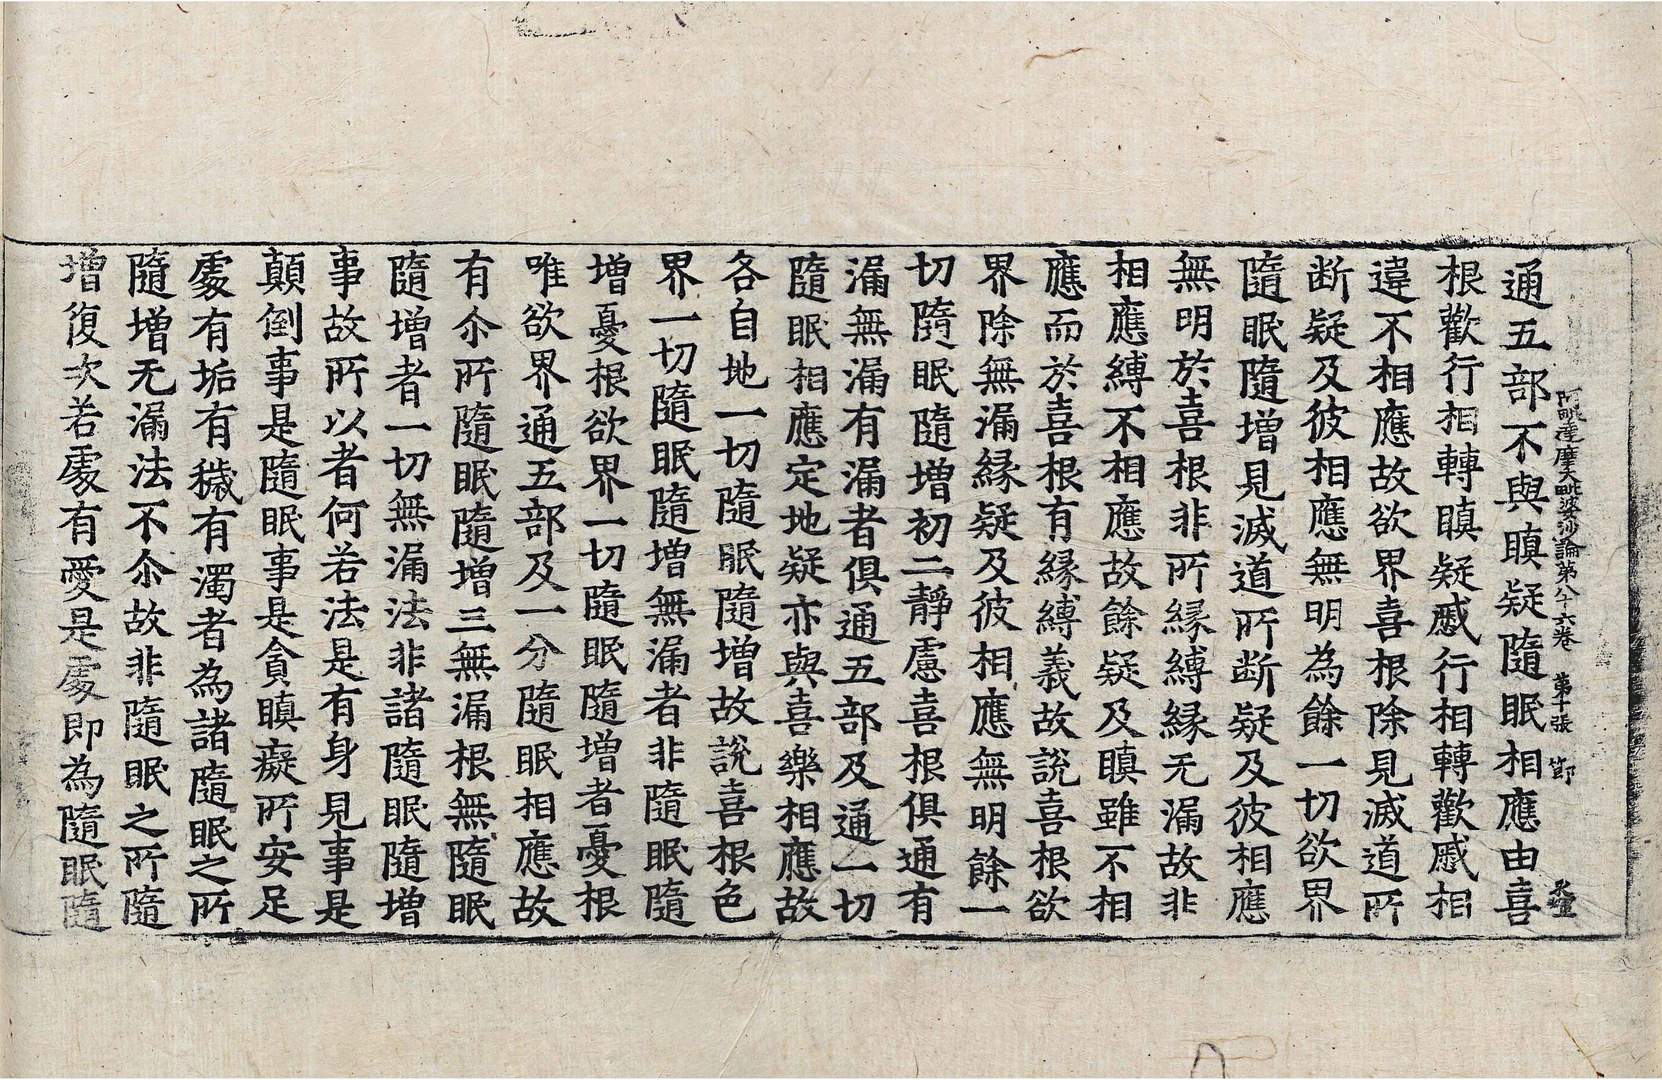 阿毗達摩大毗婆沙論第八十六卷 第十張 節
通五部不與瞋疑隨眠相應由喜
根歡行相轉瞋疑慼行相轉歡慼相
違不相應故欲界喜根除見滅道所
断疑及彼相應無明為餘一切欲界
隨眠隨增見滅道所断疑及彼相應
無明於喜根非所緣縛緣无漏故非
相應縛不相應故餘疑及瞋雖不相
應而於喜根有緣縛義故說喜根欲
界除無漏緣疑及彼相應無明餘一
切隨眠隨增初二靜慮喜根俱通有
漏無漏有漏者俱通五部及通一切
隨眠相應定地疑亦與喜樂相應故
各自地一切隨眠隨增故說喜根色
界一切隨眠隨增無漏者非隨眠隨
增憂根欲界一切隨眠隨增者憂根
唯欲界通五部及一分隨眠相應故
有尒所隨眠隨增三無漏根無隨眠
隨增者一切無漏法非諸隨眠隨增
事故所以者何若法是有身見事是
顛倒事是隨眠事是貪瞋癡所安足
處有垢有穢有濁者為諸隨眠之所
隨增无漏法不尒故非隨眠之所隨
增復次若處有愛是處即為隨眠隨